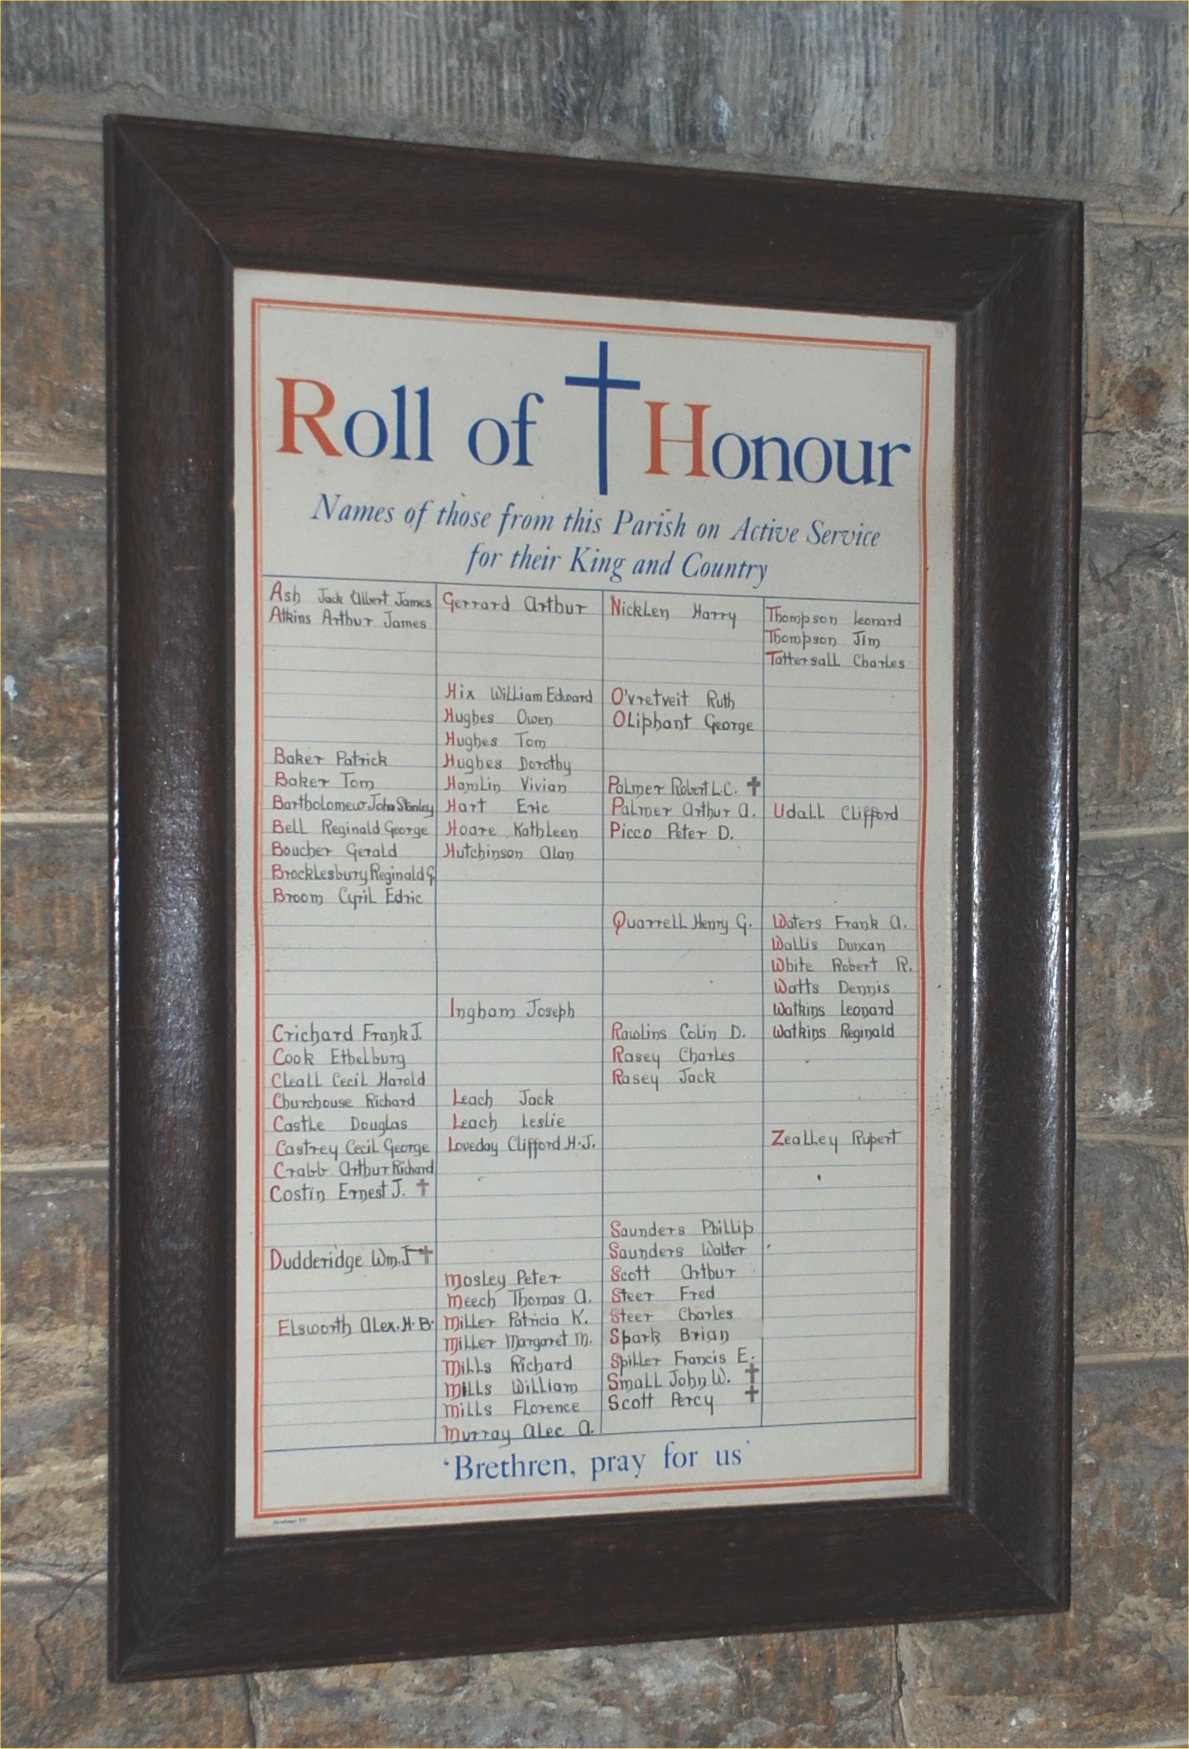 Roll of Honour
Names of those from this Parish on Active Service
for their King and Country
Ash Jack Albert James
Atkins Arthur James
Baker Patrick
Baker Tom
Bartholomew John Stanley
Bell Reginald George
Boucher Gerald
Brocklesbury Reginald G.
Broom Cyril Edric
Crichard Frank J.
Cook Ethelburg
Cleall Cecil Harold
Churchouse Richard
Castle Douglas
Castrey Cecil George
Crabb Arthur Richard
Costin Ernest J. ✝
Dudderidge Wm. J ✝
Elsworth Alex. H. B.
Gerrard Arthur
Hix William Edward
Hughes Owen
Hughes Tom
Hughes Dorothy
Hamlin Vivian
Hart Eric
Hoare Kathleen
Hutchinson Alan
Ingham Joseph
Leach Jack
Leach Leslie
Loveday Clifford H. J.
Mosley Peter
Meech Thomas A.
Miller Patricia K.
Miller Margaret M.
Mills Richard
Mills William
Mills Florence
Murray Alec A.
Nicklen Harry
O'vretveit Ruth
Oliphant George
Palmer Robert L.C. ✝
Palmer Arthur A.
Picco Peter D.
Quarrell Henry G.
Rawlins Colin D.
Rasey Charles
Rasey Jack
Saunders Phillip
Saunders Walter
Scott Arthur
Steer Fred
Steer Charles
Spark Brian
Spiller Francis E.
Small John W. ✝
Scott Percy ✝
Thompson Leonard
Thompson Jim
Tattersall Charles
Udall Clifford
Waters Frank A.
Wallis Duncan
White Robert R.
Watts Dennis
Watkins Leonard
Watkins Reginald
Zealley Rupert
'Brethren, pray for us'